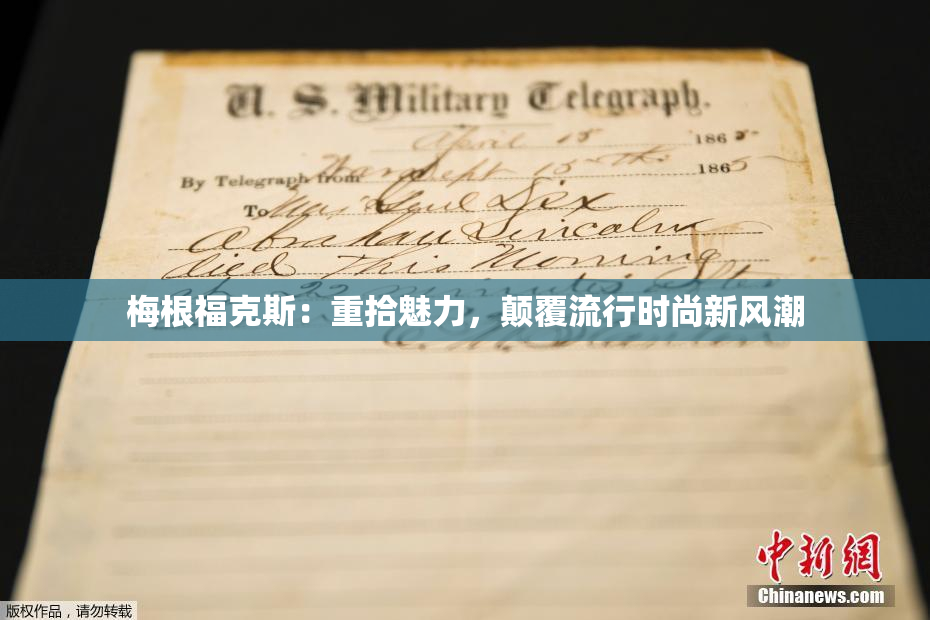 U. S. Military Telegraph.
April 15 1865
By Telegraph from War Dept 15th 1865
To Maj Genl Dix
Abraham Lincoln
died This Morning
22 minutes after
梅根福克斯：重拾魅力，颠覆流行时尚新风潮
E. M. Stanton
中新網
Chinanews.com
版权作品，请勿转载